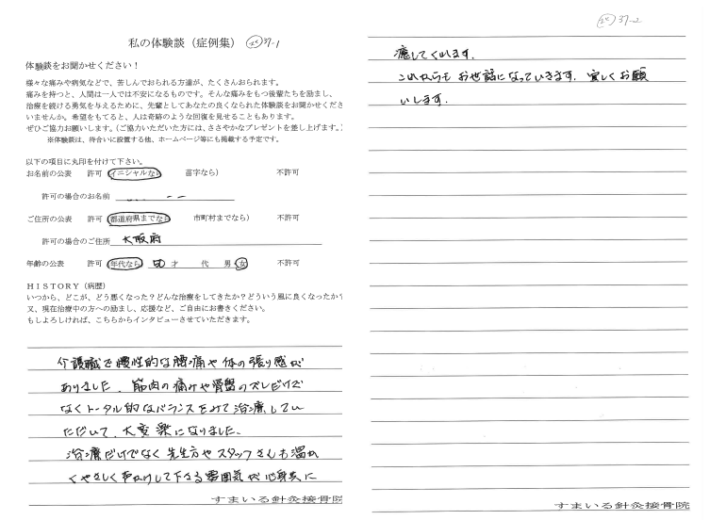 私の体験談（症例集） 37-1
体験談をお聞かせください！
様々な痛みや病気などで、苦しんでおられる方達が、たくさんおられます。
痛みを持つと、人間は一人では不安になるものです。そんな痛みをもつ後輩たちを励まし、
治療を続ける勇気を与えるために、先輩としてあなたの良くなられた体験談をお聞かせくださ
いませんか。希望をもてると、人は奇跡のような回復を見せることもあります。
ぜひご協力お願いします。（ご協力いただいた方には、ささやかなプレゼントを差し上げます。）
※体験談は、待合いに設置する他、ホームページ等にも掲載する予定です。
以下の項目に丸印を付けて下さい。
お名前の公表 許可（イニシャルなら 苗字なら） 不許可
許可の場合のお名前
ご住所の公表 許可（都道府県までなら 市町村までなら） 不許可
許可の場合のご住所 大阪府
年齢の公表 許可（年代なら 才 代 男 女 不許可
ＨＩＳＴＯＲＹ（病歴）
いつから、どこが、どう悪くなった？どんな治療をしてきたか？どういう風に良くなったか？
又、現在治療中の方への励まし、応援など、ご自由にお書きください。
もしよろしければ、こちらからインタビューさせていただきます。
介護職で慢性的な腰痛や体の張り感が
ありました。筋肉の痛みや骨盤のズレだけで
なくトータル的なバランスをみて治療してい
ただいて、大変楽になりました。
治療だけでなく先生方やスタッフさんも温か
くやさしく声かけして下さる雰囲気が心身共に
すまいる針灸接骨院
37-2
癒してくれます。
これからもお世話になっていきます。宜しくお願
いします。
すまいる針灸接骨院